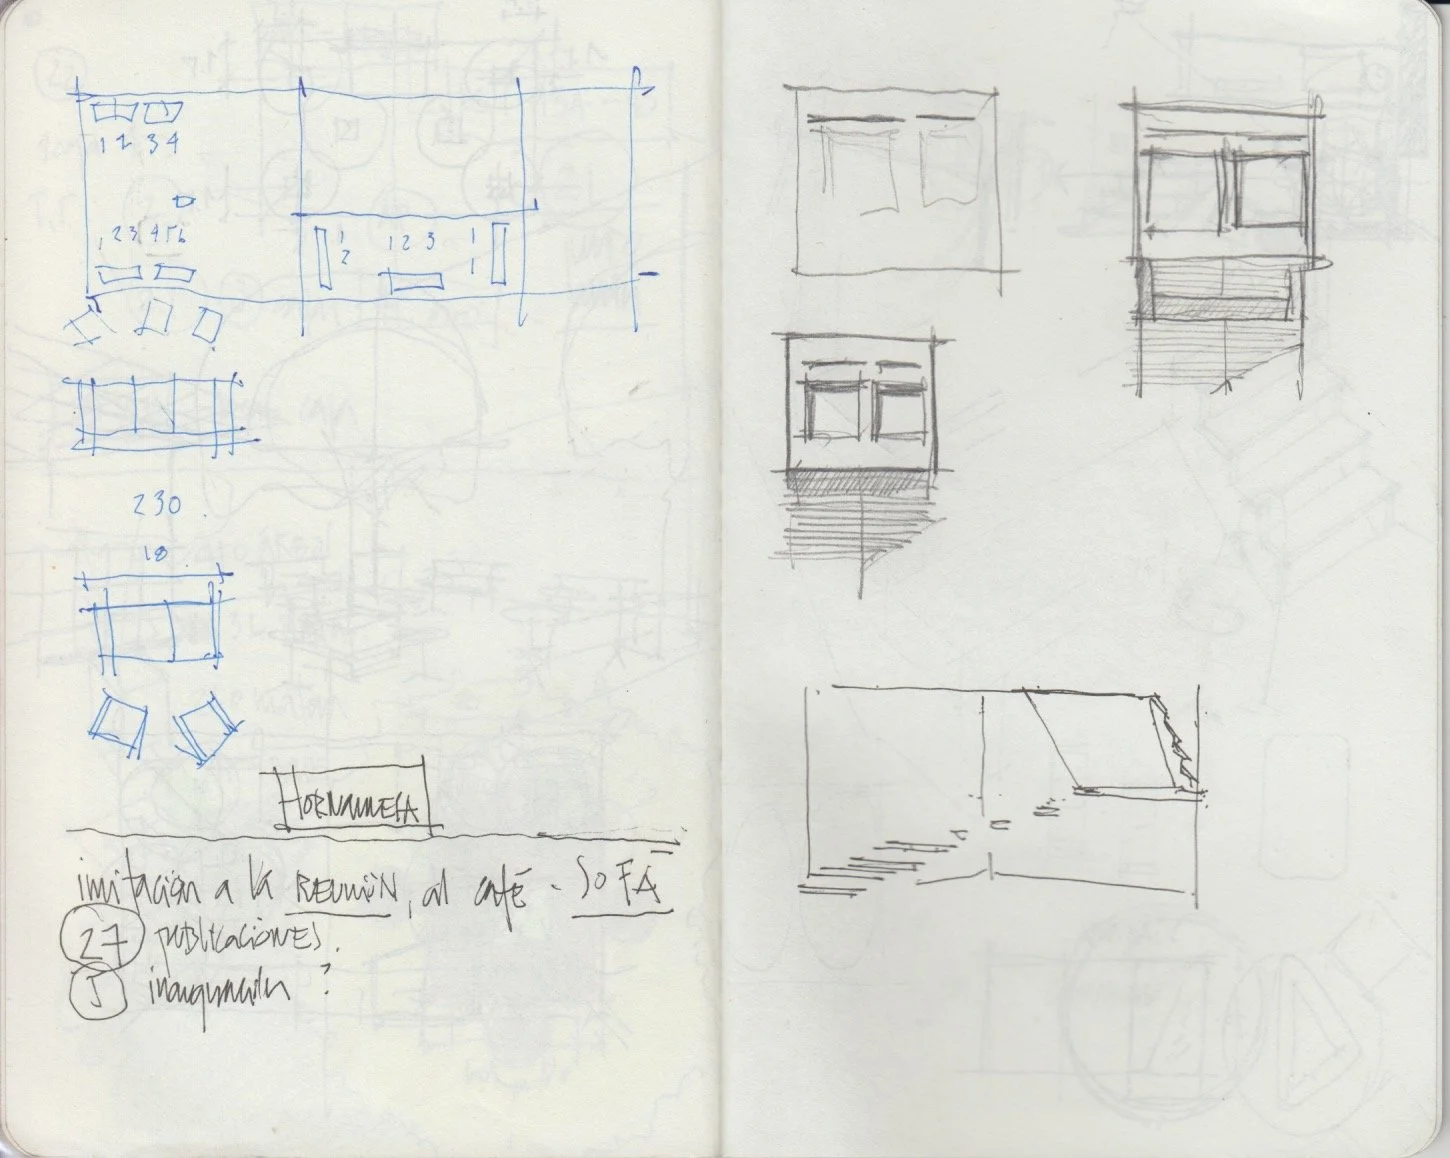 1 2 3 4
1 2 3 4 5 6
1
2
1 2 3
1
1
230
18
imitación a la REUNIÓN, al café - SOFÁ
27 publicaciones.
inauguración ?